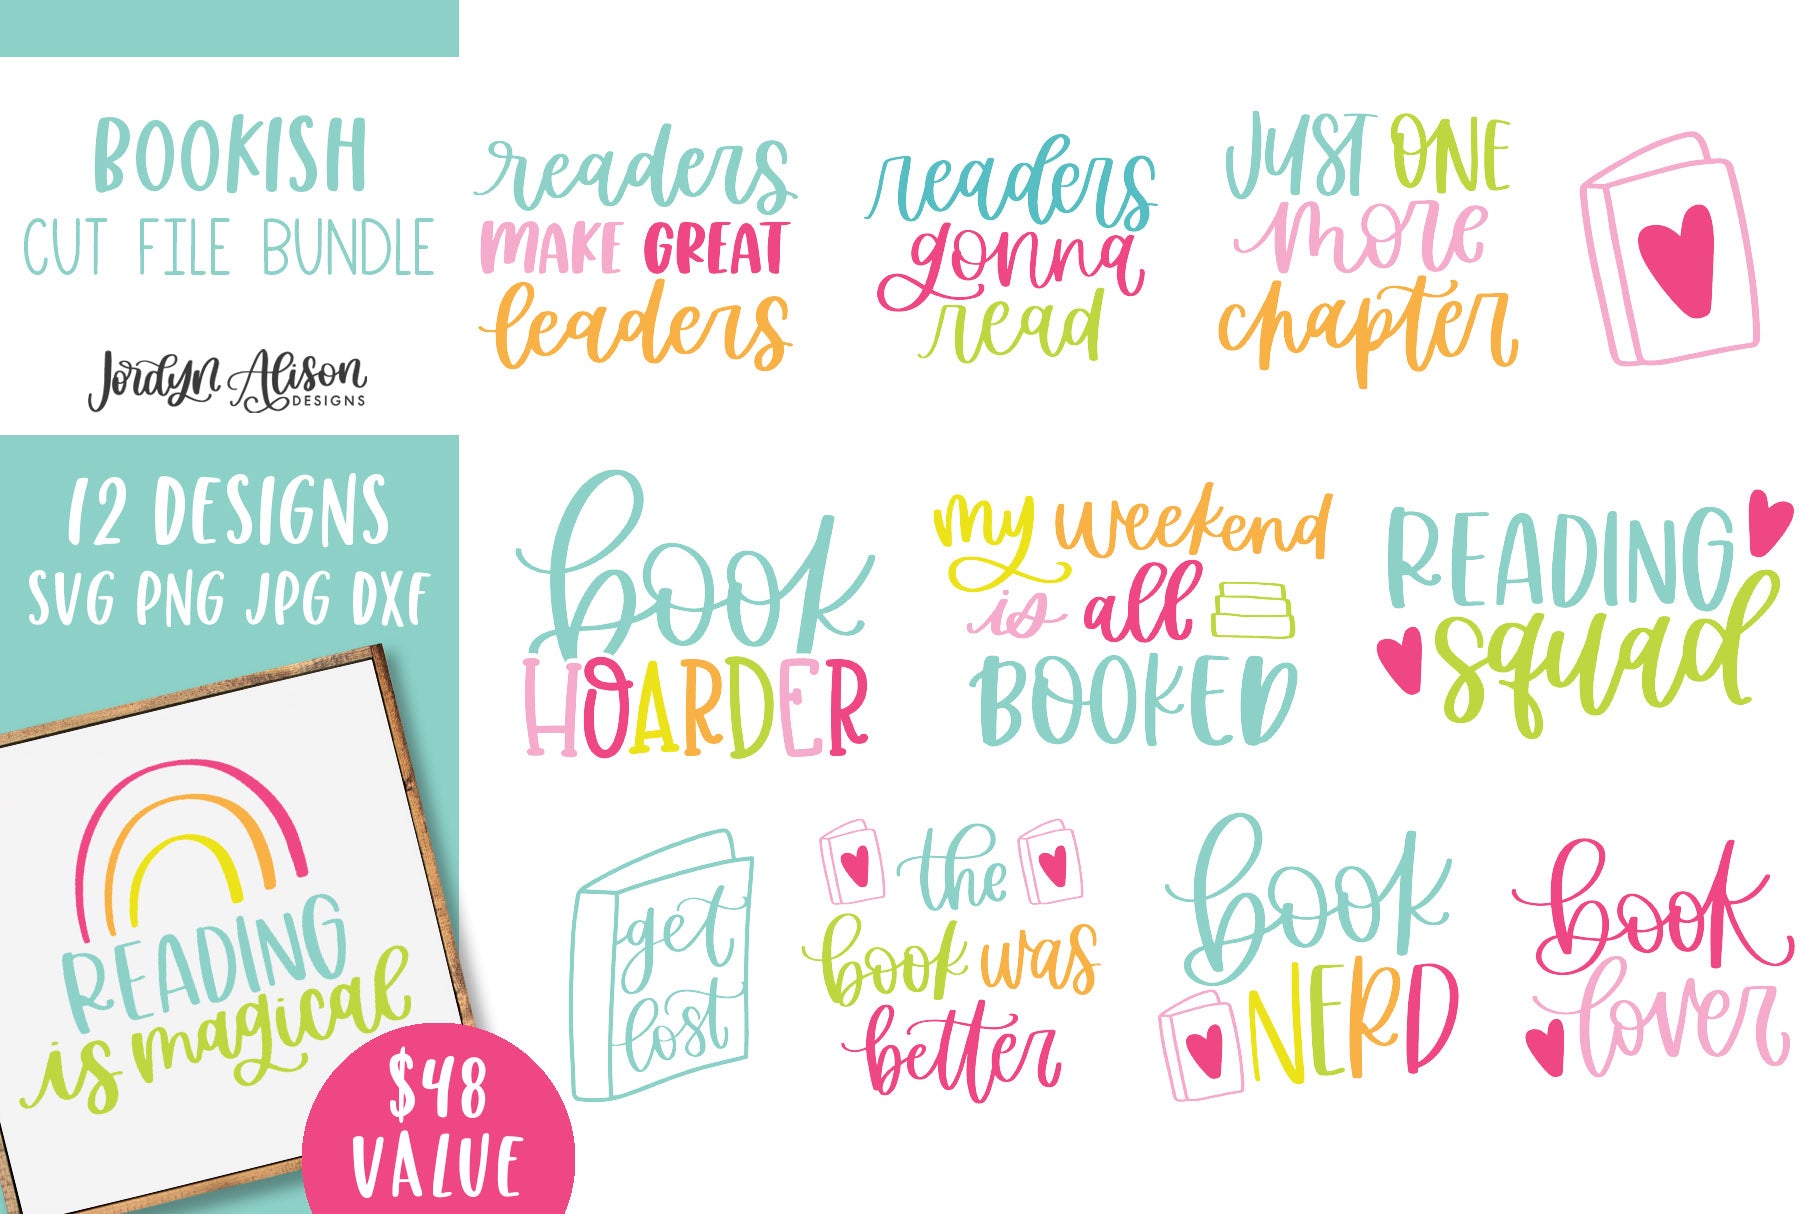 BOOKISH
CUT FILE BUNDLE
Jordyn Alison
DESIGNS
12 DESIGNS
SVG PNG JPG DXF
READING
is magical
$48
VALUE
readers
MAKE GREAT
leaders
readers
gonna
read
JUST ONE
more
chapter
book
HOARDER
my weekend
is all
BOOKED
READING
squad
get
lost
the
book was
better
book
NERD
book
lover